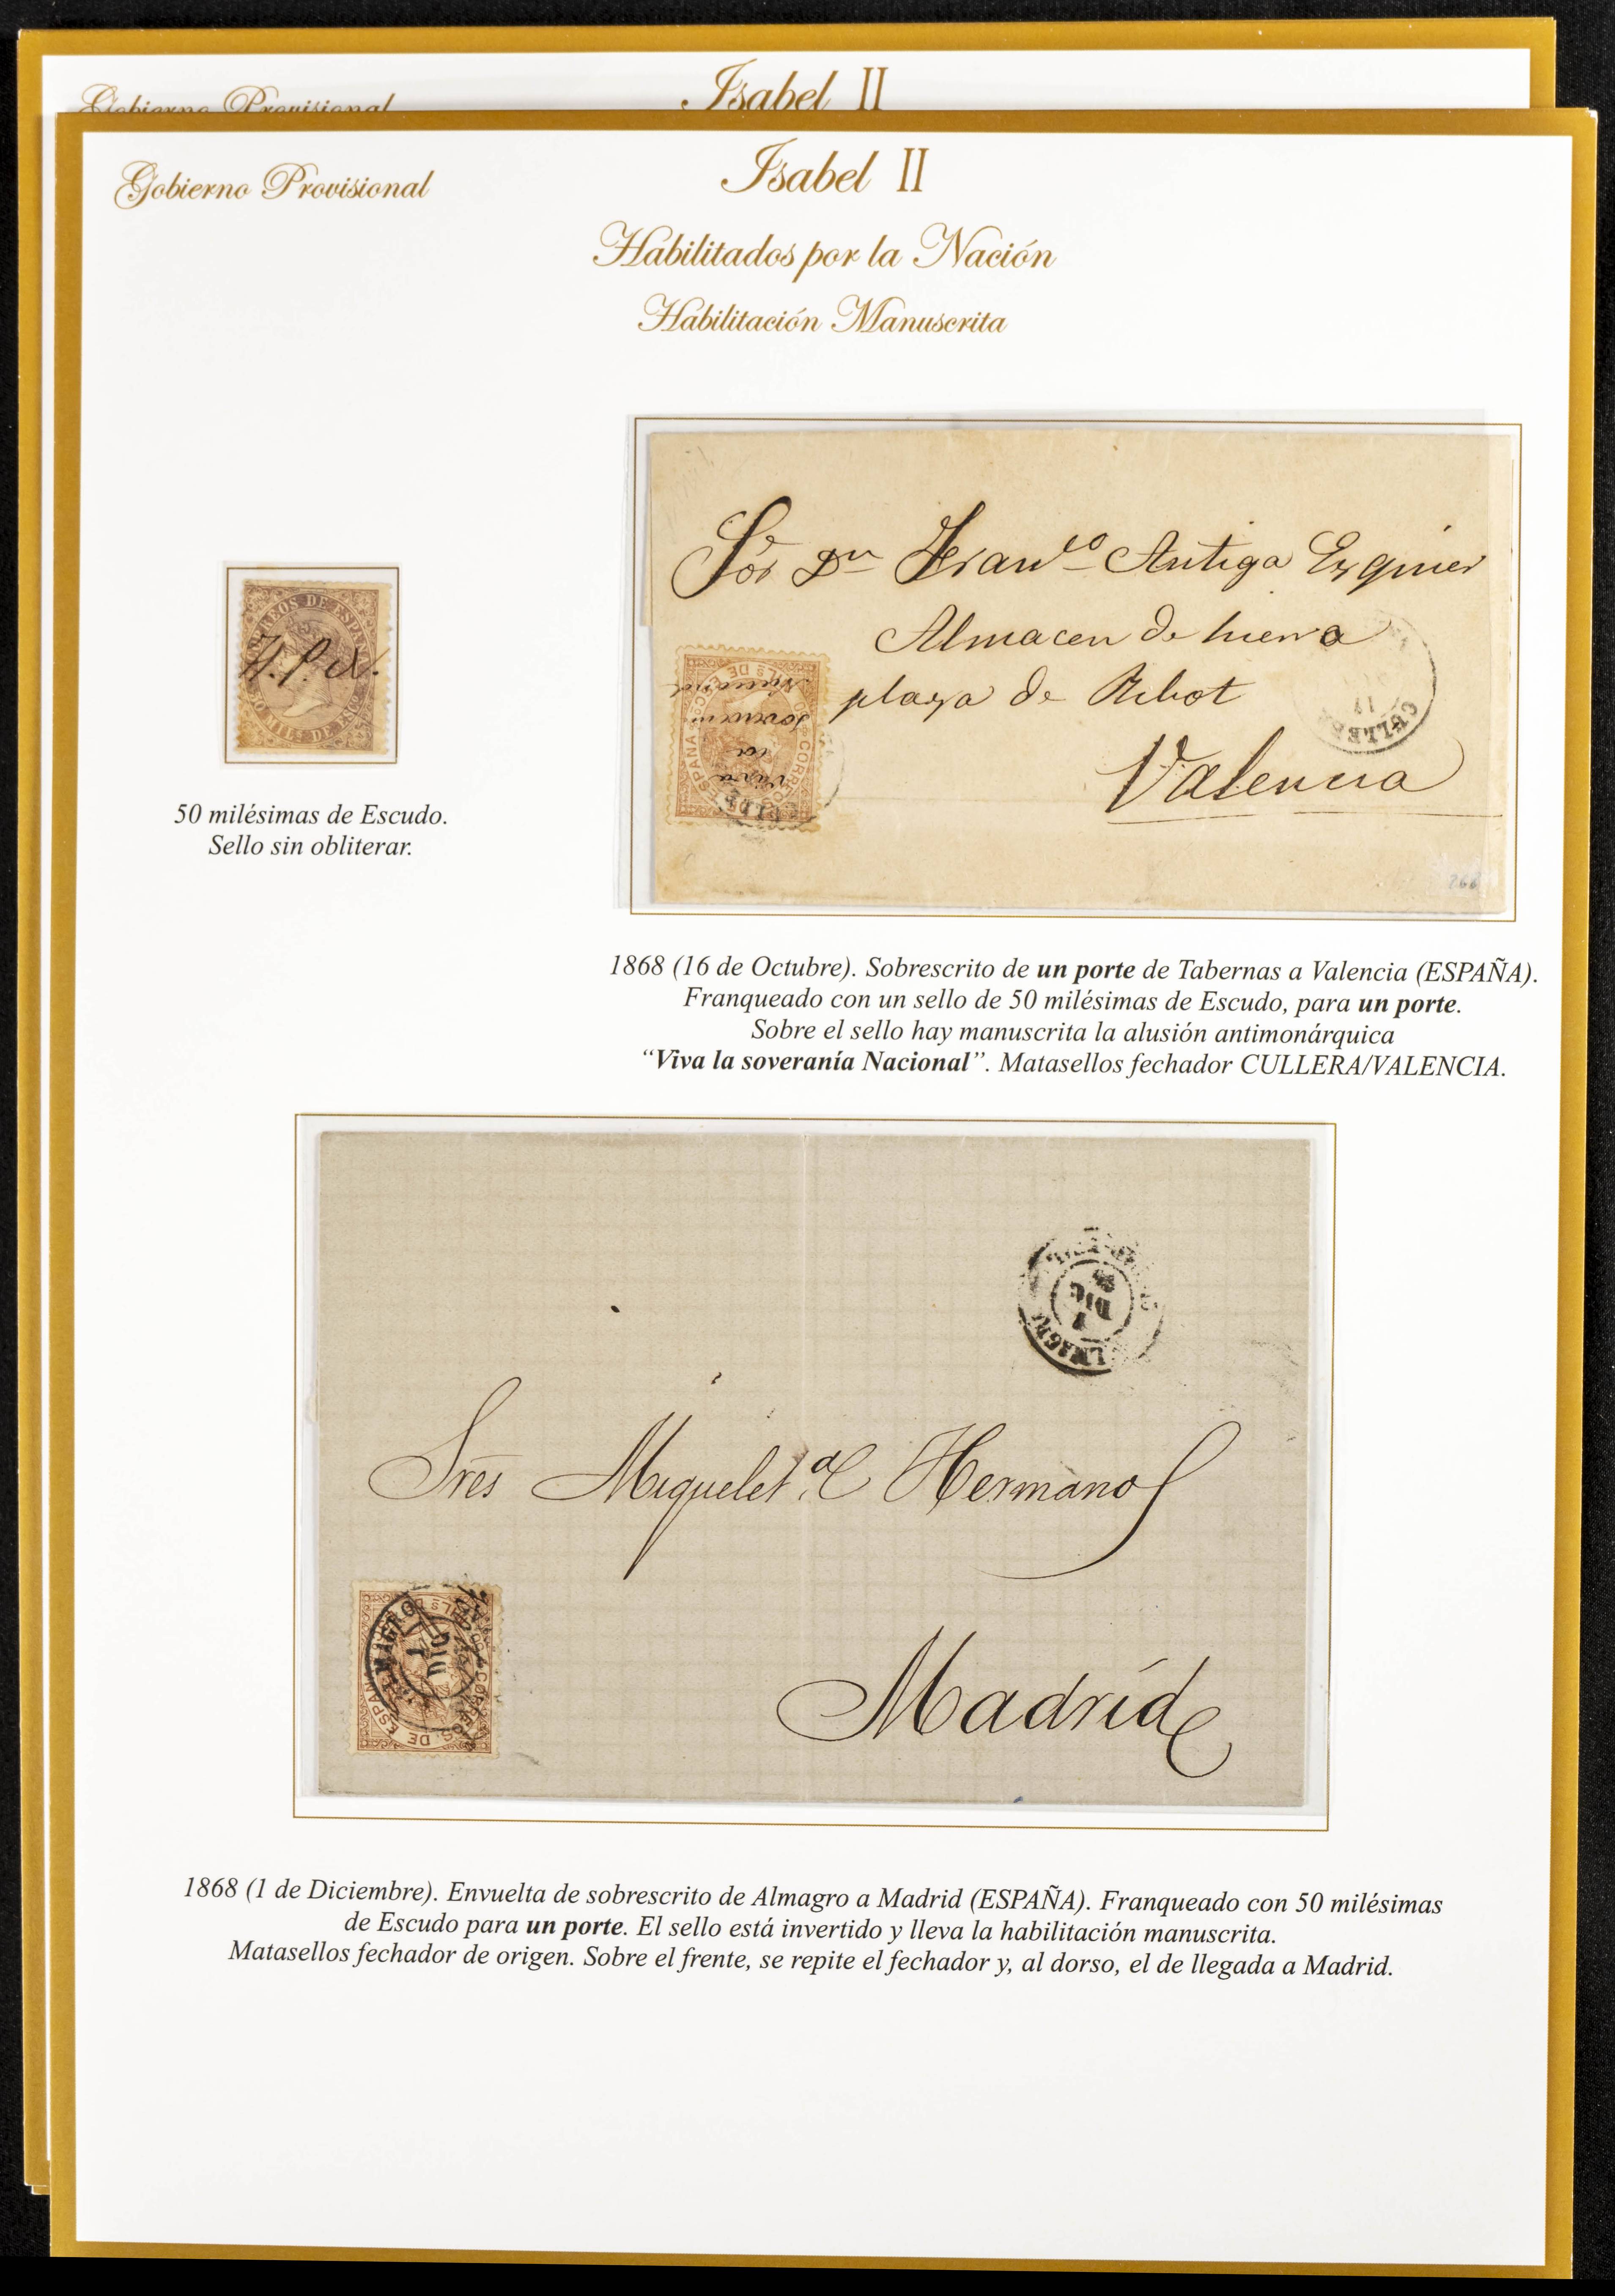 Gobierno Provisional
Isabel II
Gobierno Provisional
Isabel II
Habilitados por la Nación
Habilitación Manuscrita
CORREOS DE ESPAÑ
H.P.N.
50 MILS DE ESCU
50 milésimas de Escudo.
Sello sin obliterar.
Sor Dn Franco Antiga Ezquier
Almacen de hierro
plaza de Ribot
Valencia
CULLERA
Viva
la
soverania
Nacional
CORREOS DE ESPAÑA
266
1868 (16 de Octubre). Sobrescrito de un porte de Tabernas a Valencia (ESPAÑA).
Franqueado con un sello de 50 milésimas de Escudo, para un porte.
Sobre el sello hay manuscrita la alusión antimonárquica
“Viva la soveranía Nacional”. Matasellos fechador CULLERA/VALENCIA.
1
DIC
68
Sres Miquelet Hermanos
ALMAGRO
1
DIC
CORREOS DE ESPAÑ
Madrid
1868 (1 de Diciembre). Envuelta de sobrescrito de Almagro a Madrid (ESPAÑA). Franqueado con 50 milésimas
de Escudo para un porte. El sello está invertido y lleva la habilitación manuscrita.
Matasellos fechador de origen. Sobre el frente, se repite el fechador y, al dorso, el de llegada a Madrid.